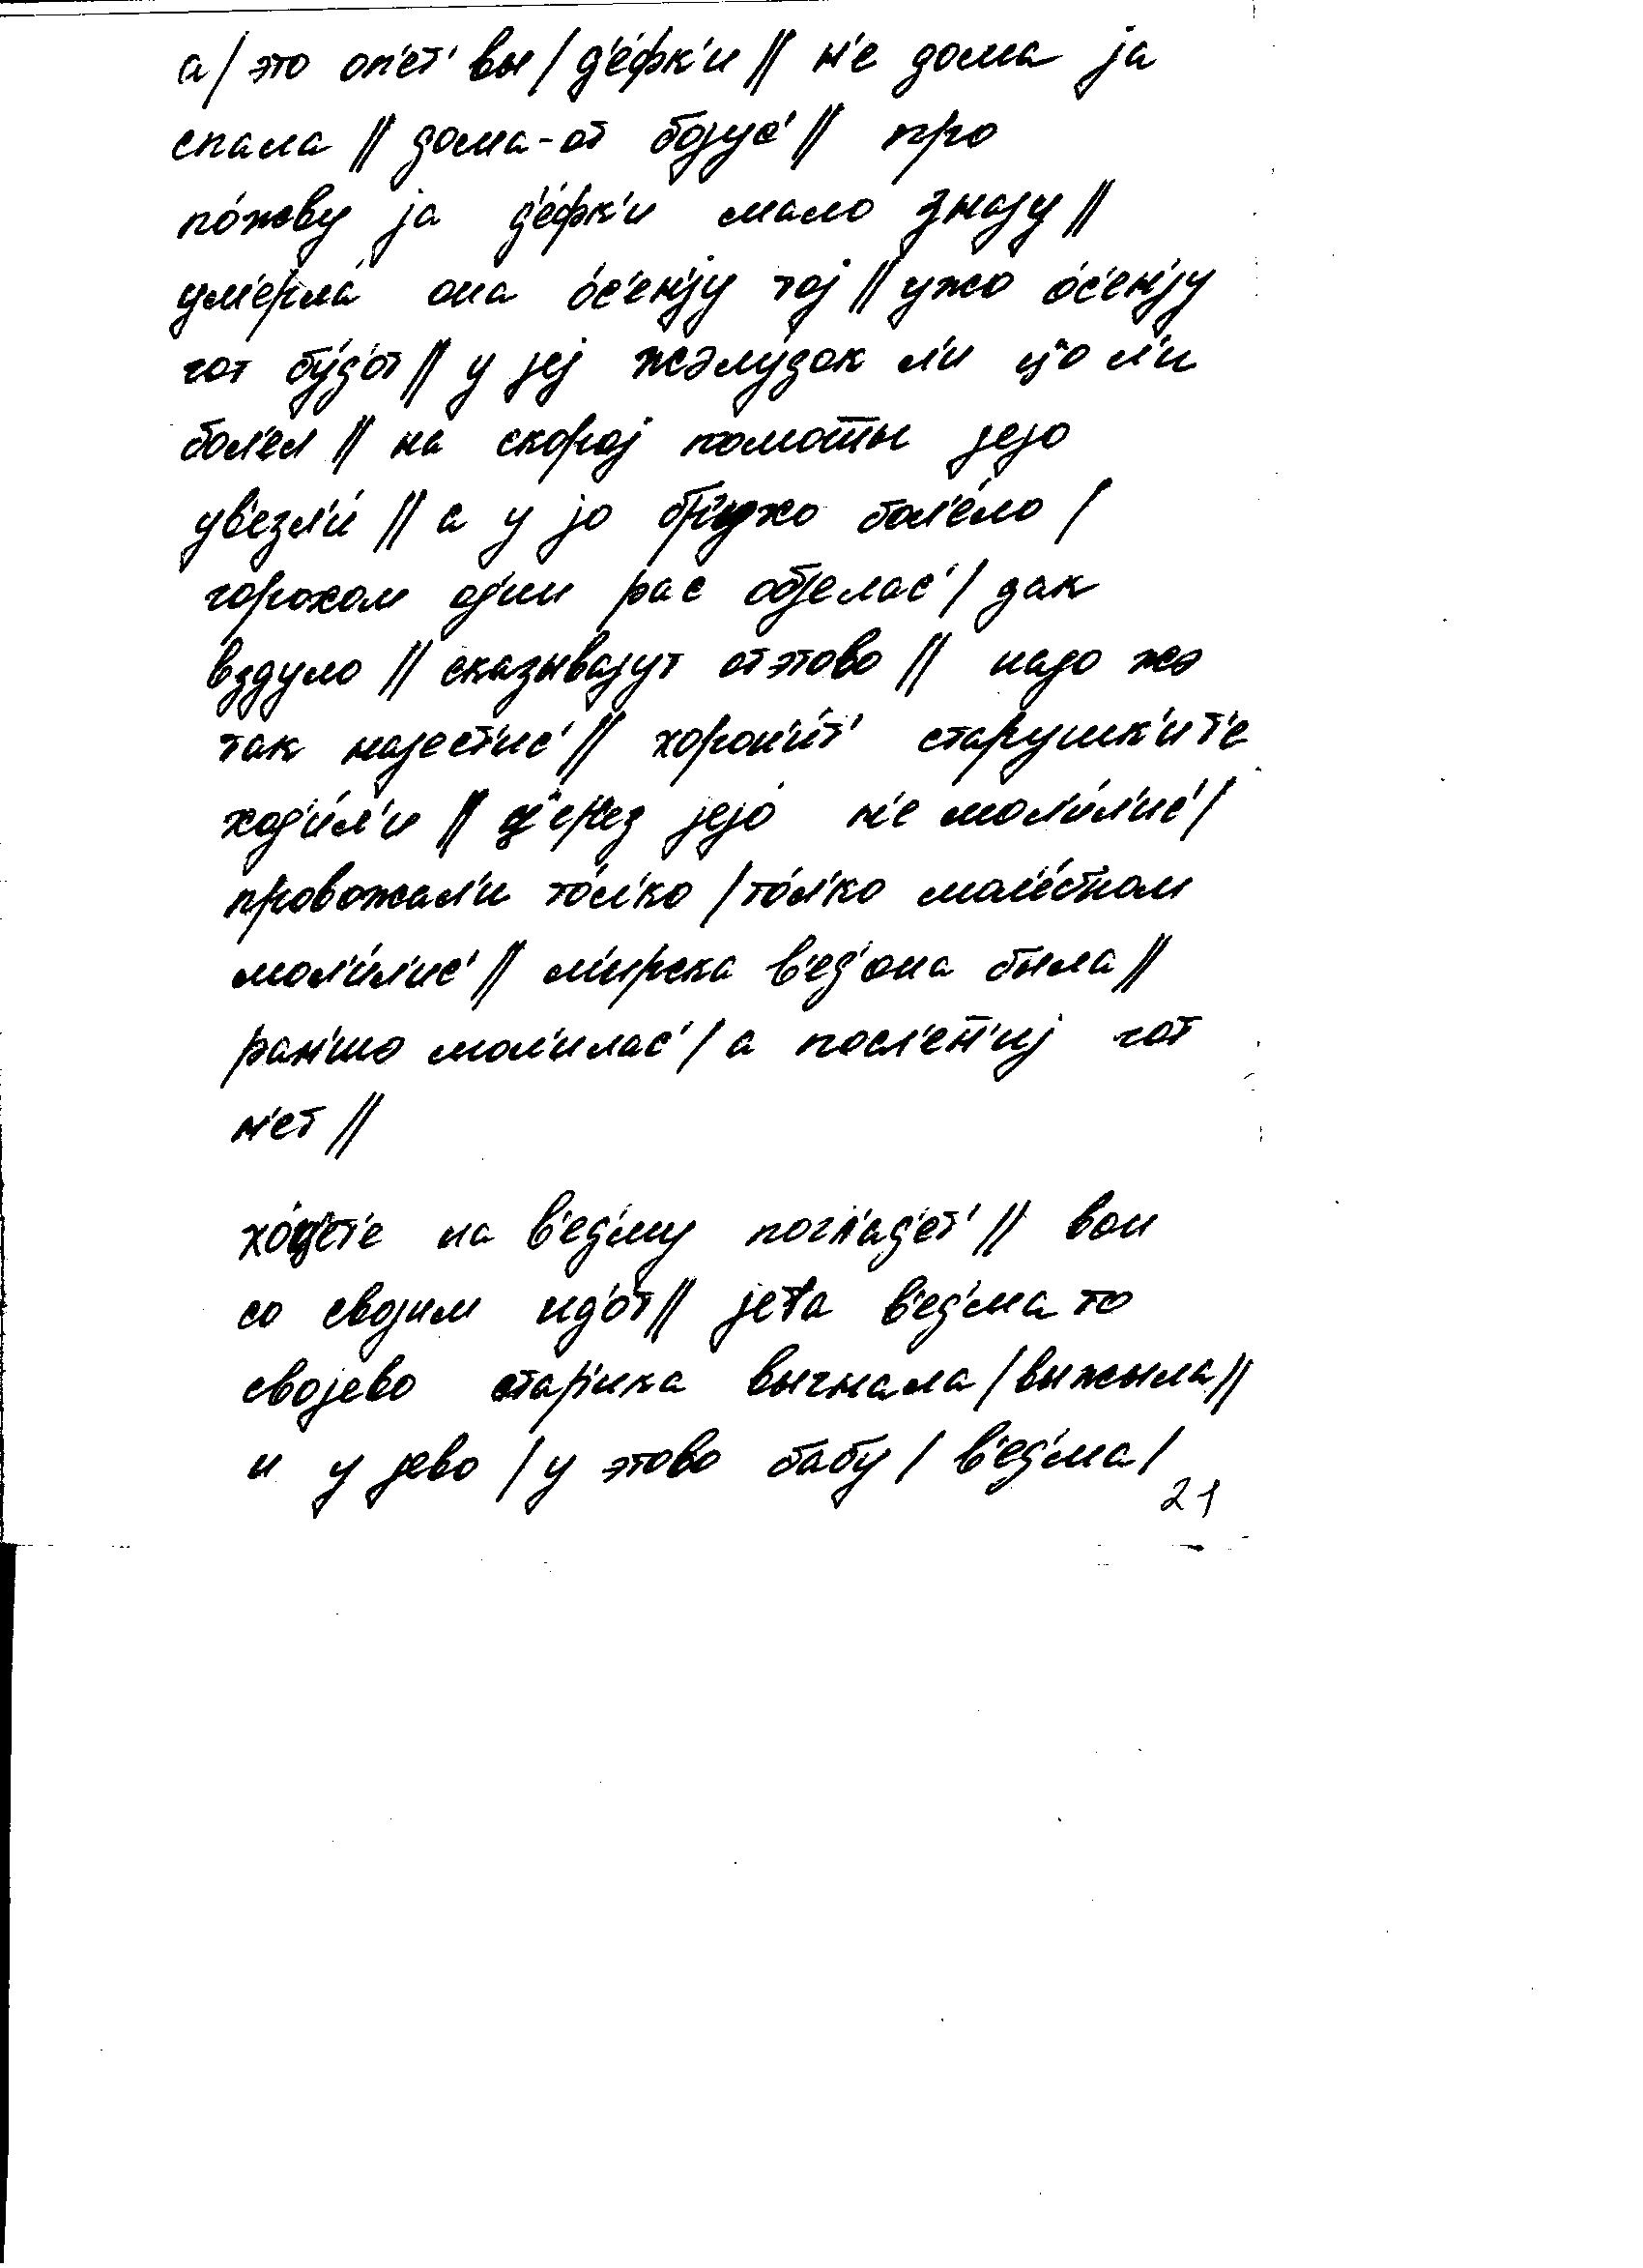 а / это оп'ет' вы / д'е́фк'и // н'е дома jа
спала // дома-от боjус' // про
по́жву jа д'е́фк'и мало знаjу //
ум'ерла́ она о́с'ен'jу тоj // ужо о́с'ен'jу
гот бу́д'от // у jеj жэлу́док л'и ц'о л'и
бол'ел // на скороj помошшы jеjо
ув'езл'и́ // а у jо бр'ушхо бол'е́ло /
горохом од'ин рас обjелас' / дак
вздуло // сказываjут от этово // надо жэ
так наjест'ис' // хорон'и́т' старушк'и т'е
ход'и́л'и // ц'ер'ез jеjо́ н'е мол'и́л'ис' /
провожал'и то́л'ко / то́л'ко мол'е́бном
мол'и́л'ис' // м'ирска в'ед' она была //
ран'шэ мол'илас' / а посл'ен'иj гот
н'ет //
хо́ц'ет'е на в'ед'му погл'ад'ет' // вон
со своjим ид'о́т // jета в'ед'ма то
своjево стар'ика выгнала / выжыла //
и у jево / у этово бабу / в'ед'ма /
21